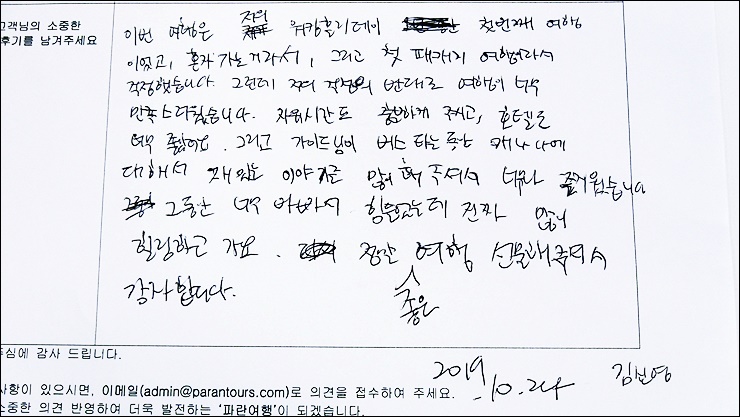 고객님의 소중한
후기를 남겨주세요
이번 여행은 저의 워킹홀리데이 첫번째 여행
이었고, 혼자 가는거라서, 그리고 첫 패키지 여행이라서
걱정했습니다. 그런데 저의 걱정과 반대로 여행이 너무
만족스러웠습니다. 자유시간도 충분하게 주시고, 호텔도
너무 좋았어요. 그리고 가이드님이 버스 타는동안 캐나다에
대해서 재밌는 이야기를 많이 해 주셔서 너무 즐거웠습니다
그동안 너무 바빠서 힘들었는데 진짜 많이
힐링하고 가요. 정말 좋은 여행 선물해주셔서
감사합니다.
2019. 10. 24 김선영
주심에 감사 드립니다.
사항이 있으시면, 이메일(admin@parantours.com)로 의견을 접수하여 주세요.
소중한 의견 반영하여 더욱 발전하는 '파란여행'이 되겠습니다.